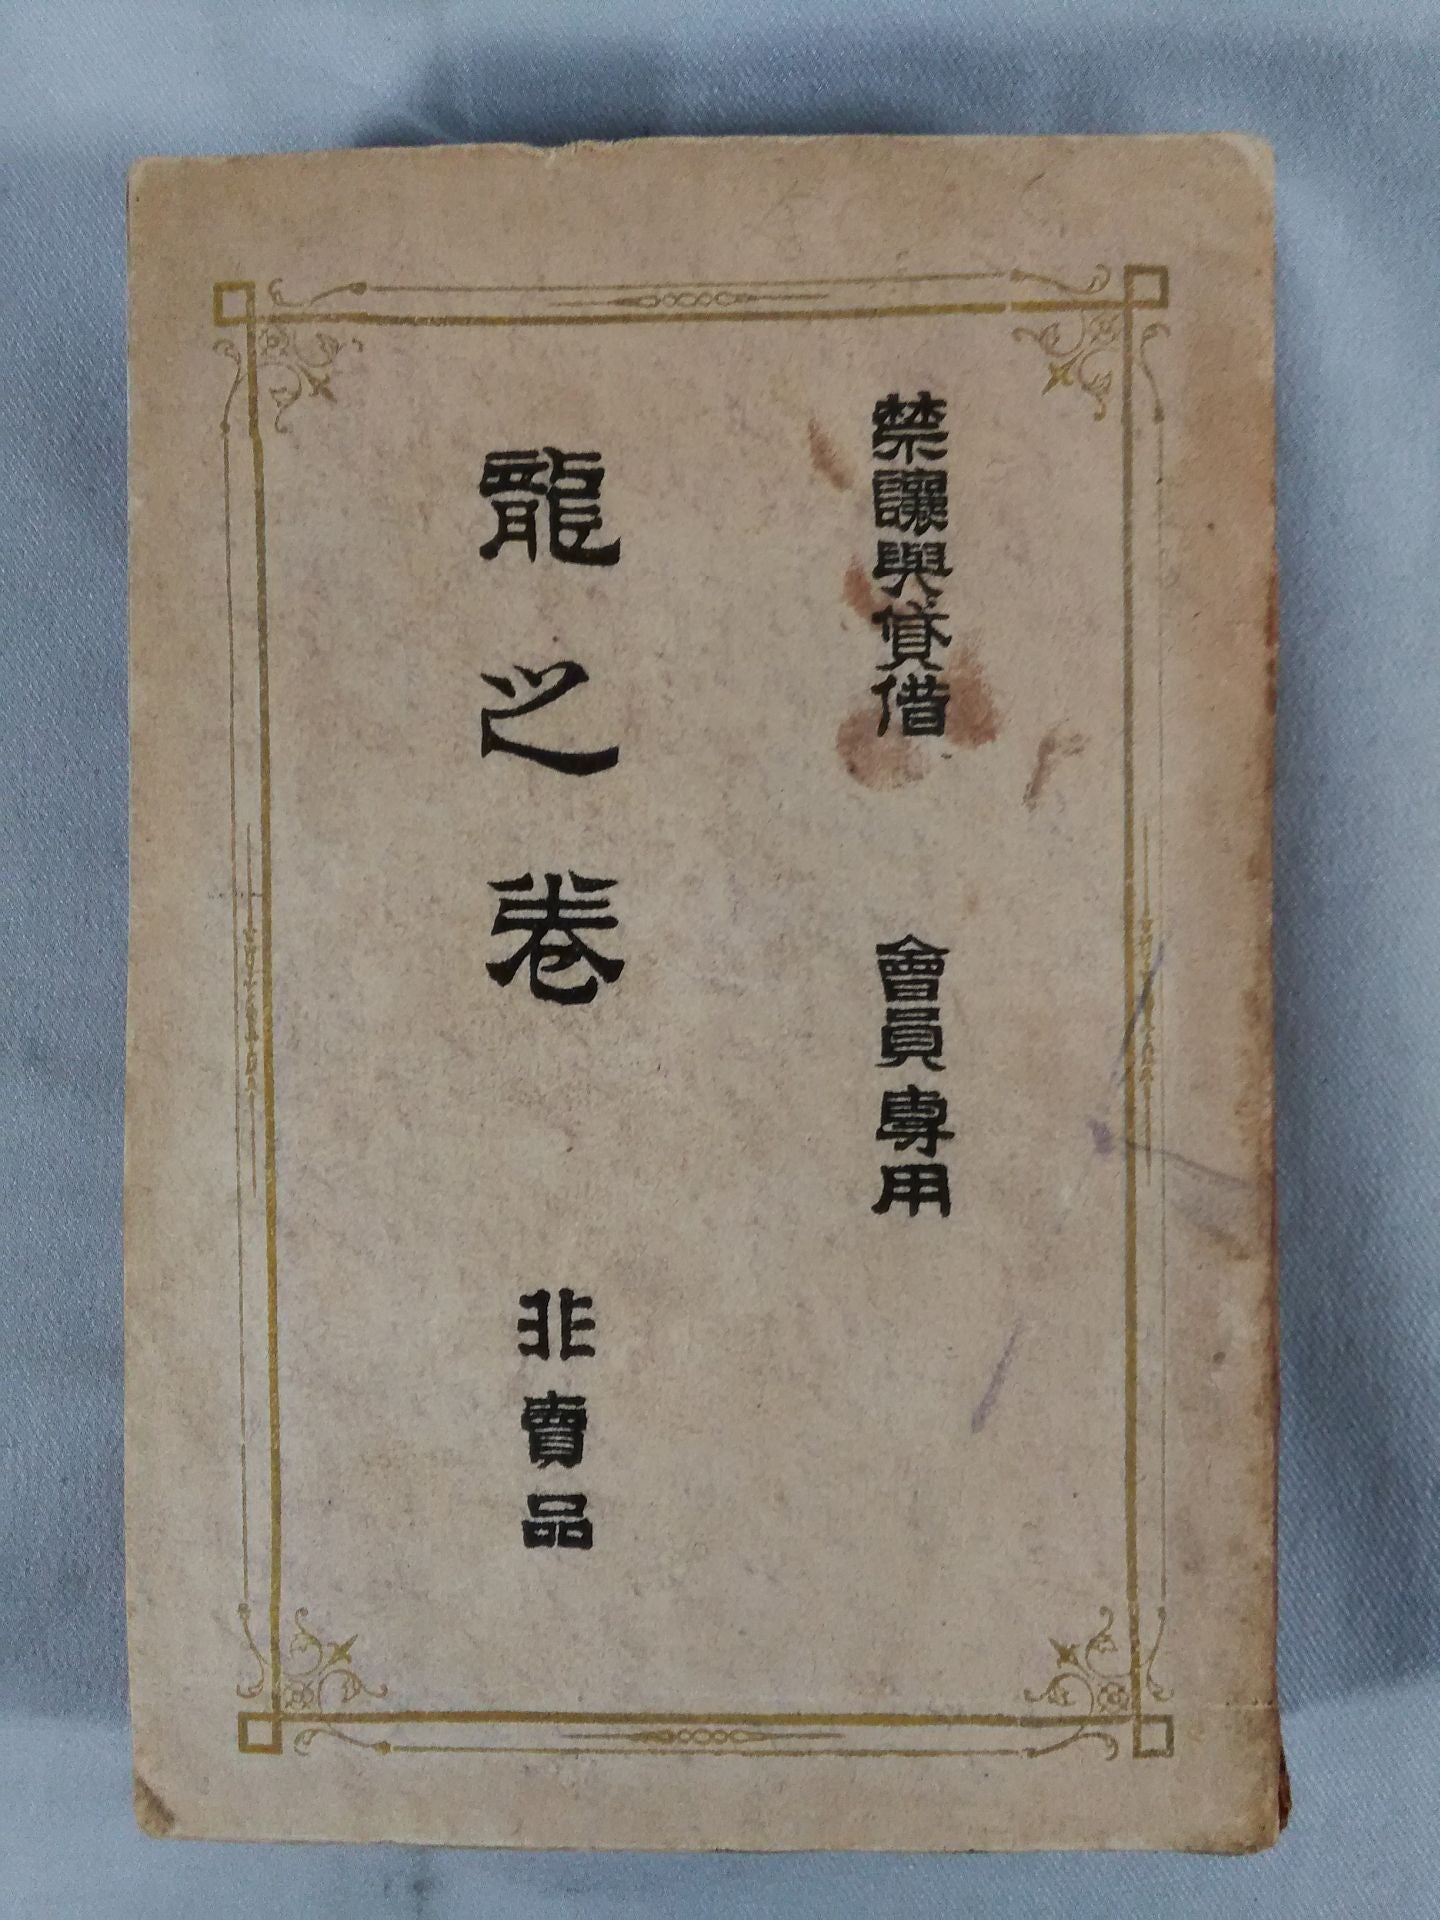 禁讓與貸借 會員專用
龍之卷 非賣品